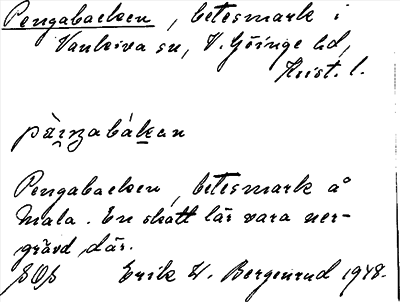 Pengabacken, betesmark i
Vankiva sn, V. Göinge hd,
Krist. l.
Pengabacken, betesmark å
Mala. En skatt lär vara ner-
grävd där.
Erik W. Bergenrud 1948.